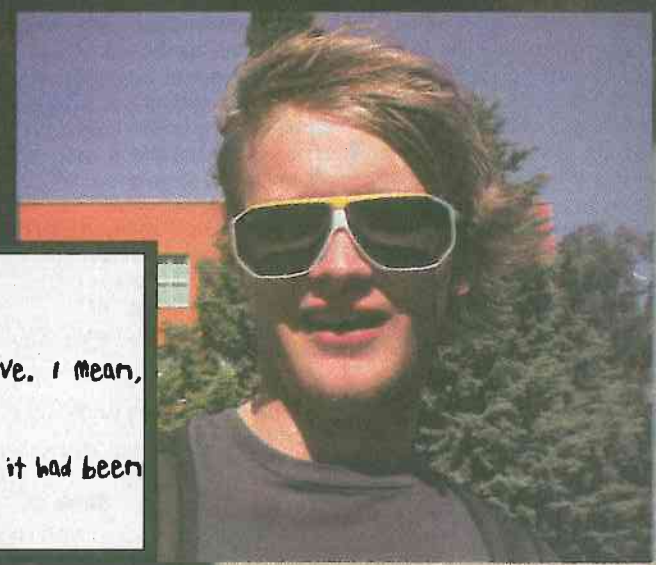 ve. I mean,
it had been